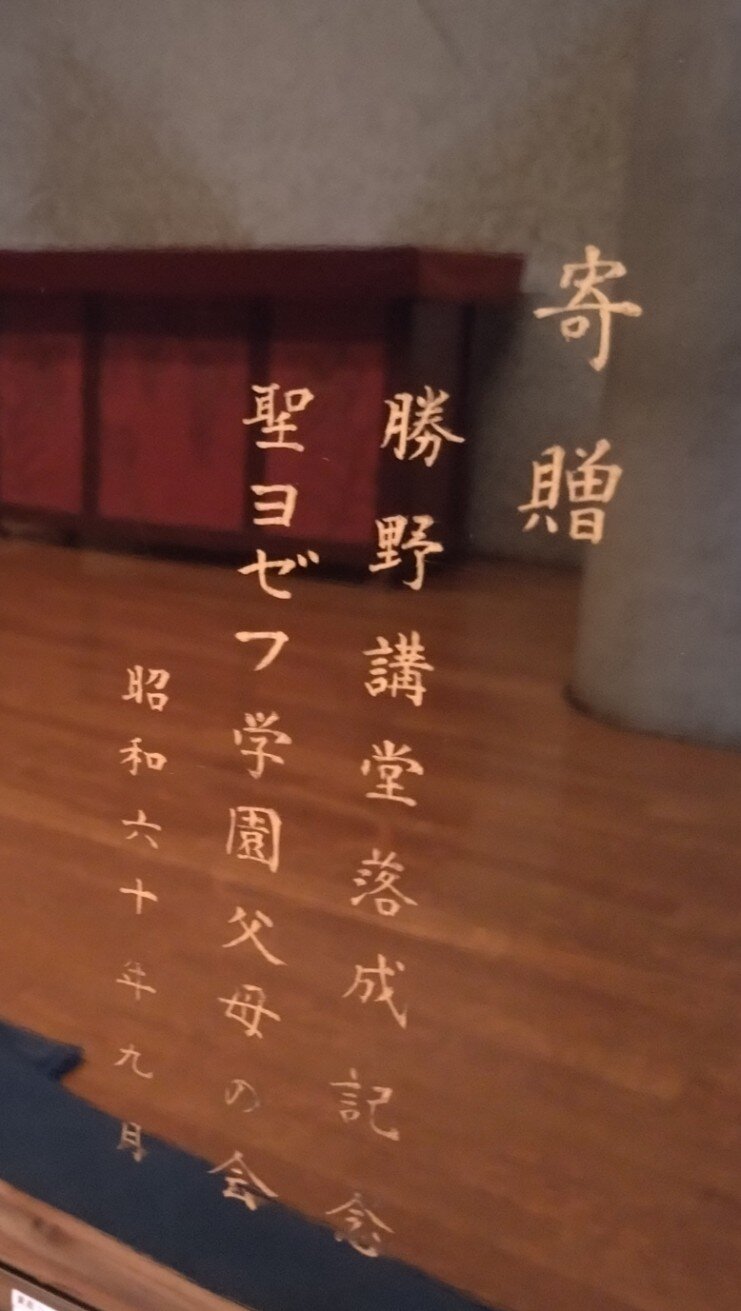 寄贈
勝野講堂落成記念
聖ヨゼフ学園父母の会
昭和六十年九月